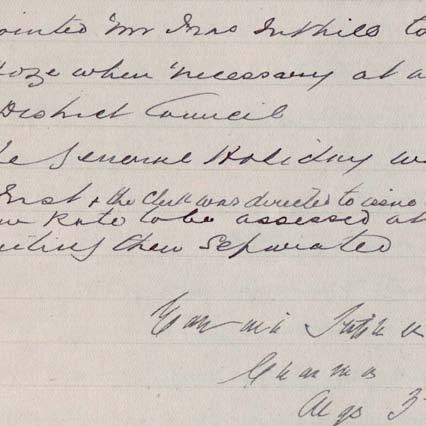 ointed Mr Thos Tuthill to
Hoze when necessary at a
District Council
he General Holiday w
Inst & the Clerk was directed to issue
ew Rate to be assessed at
eeting then Separated
Chairman
Aug 3